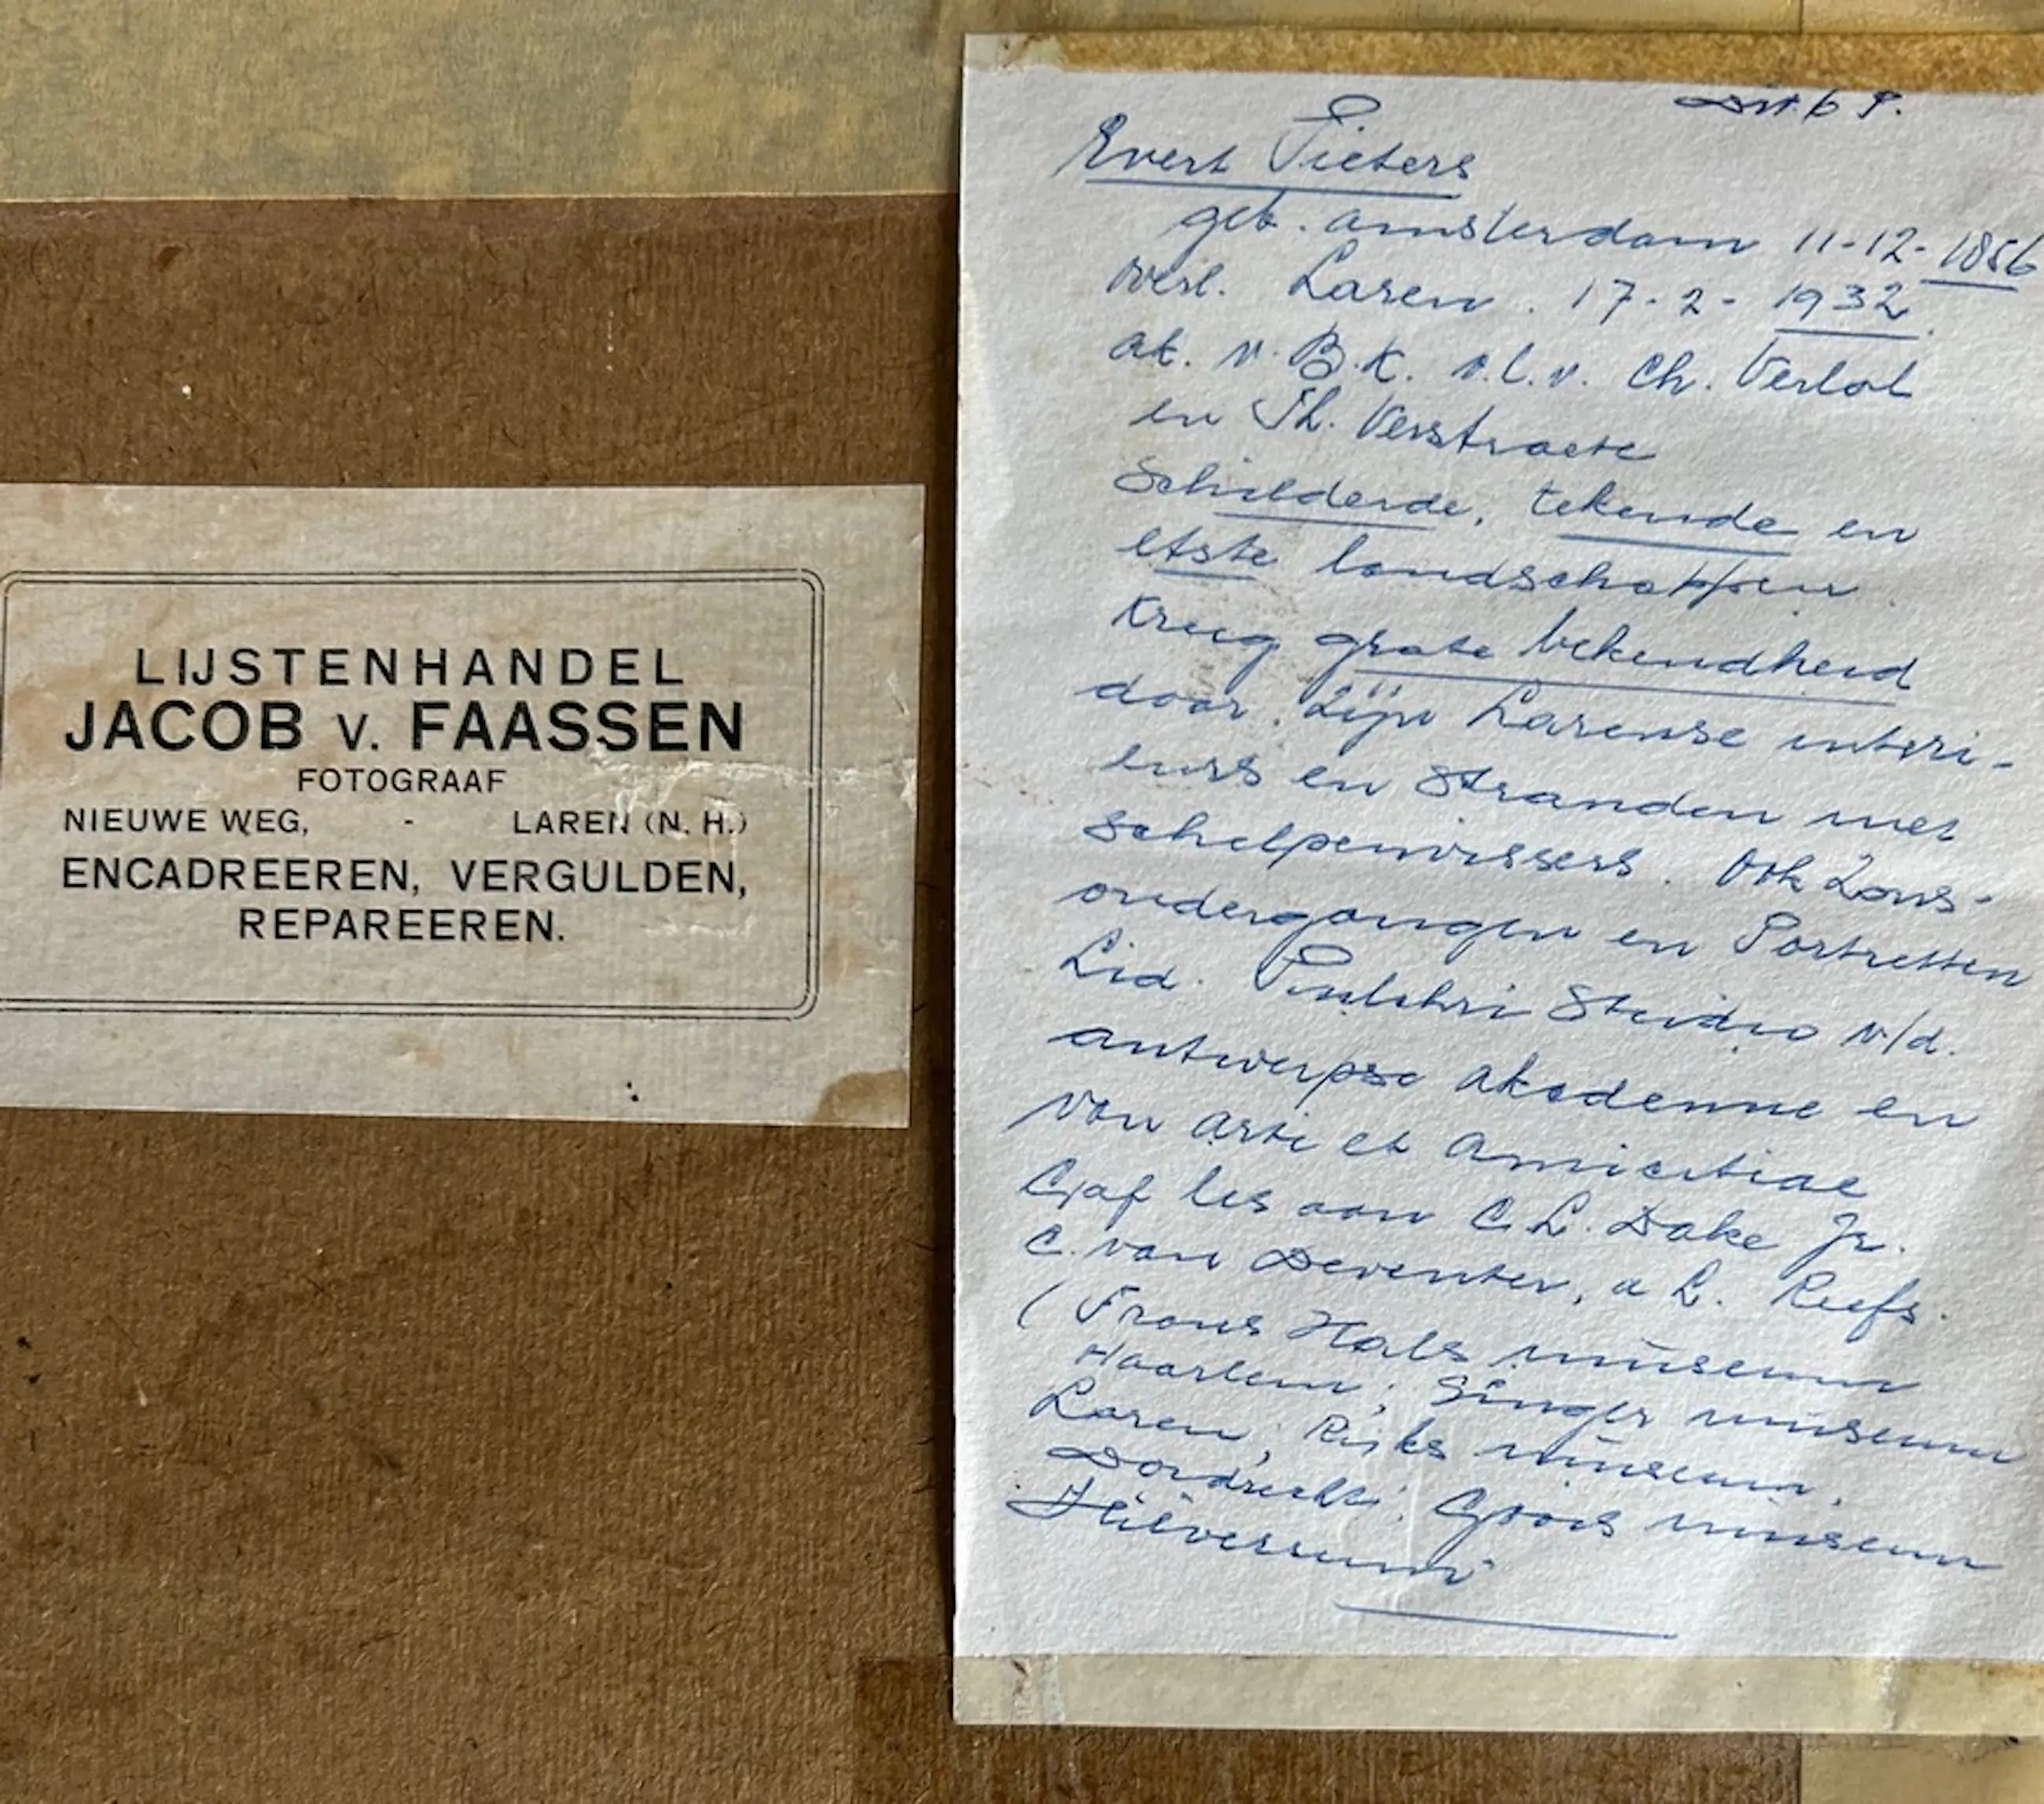 LIJSTENHANDEL
JACOB v. FAASSEN
FOTOGRAAF
NIEUWE WEG, - LAREN (N. H.)
ENCADREEREN, VERGULDEN,
REPAREEREN.
Evert Pieters
geb. Amsterdam 11-12-1856
overl. Laren. 17-2-1932.
ak. v. B.K. v.l.v. Ch. Verlat
en Th. Verstraete
Schilderde, tekende en
etste landschappen
Kreeg grote bekendheid
door zijn Larense interi-
eurs en stranden met
schelpenvissers. Ook Zons-
ondergangen en Portretten
Lid. Pulchri Studio v/d.
antwerpse akademie en
van arti et Amicitiae
Gaf les aan C.L. Dake Jr.
C. van Deventer, a L. Reefs.
(Frans Hals museum
Haarlem; Singer museum
Laren; Rijks museum,
Dordrecht; Goois museum
Hilversum